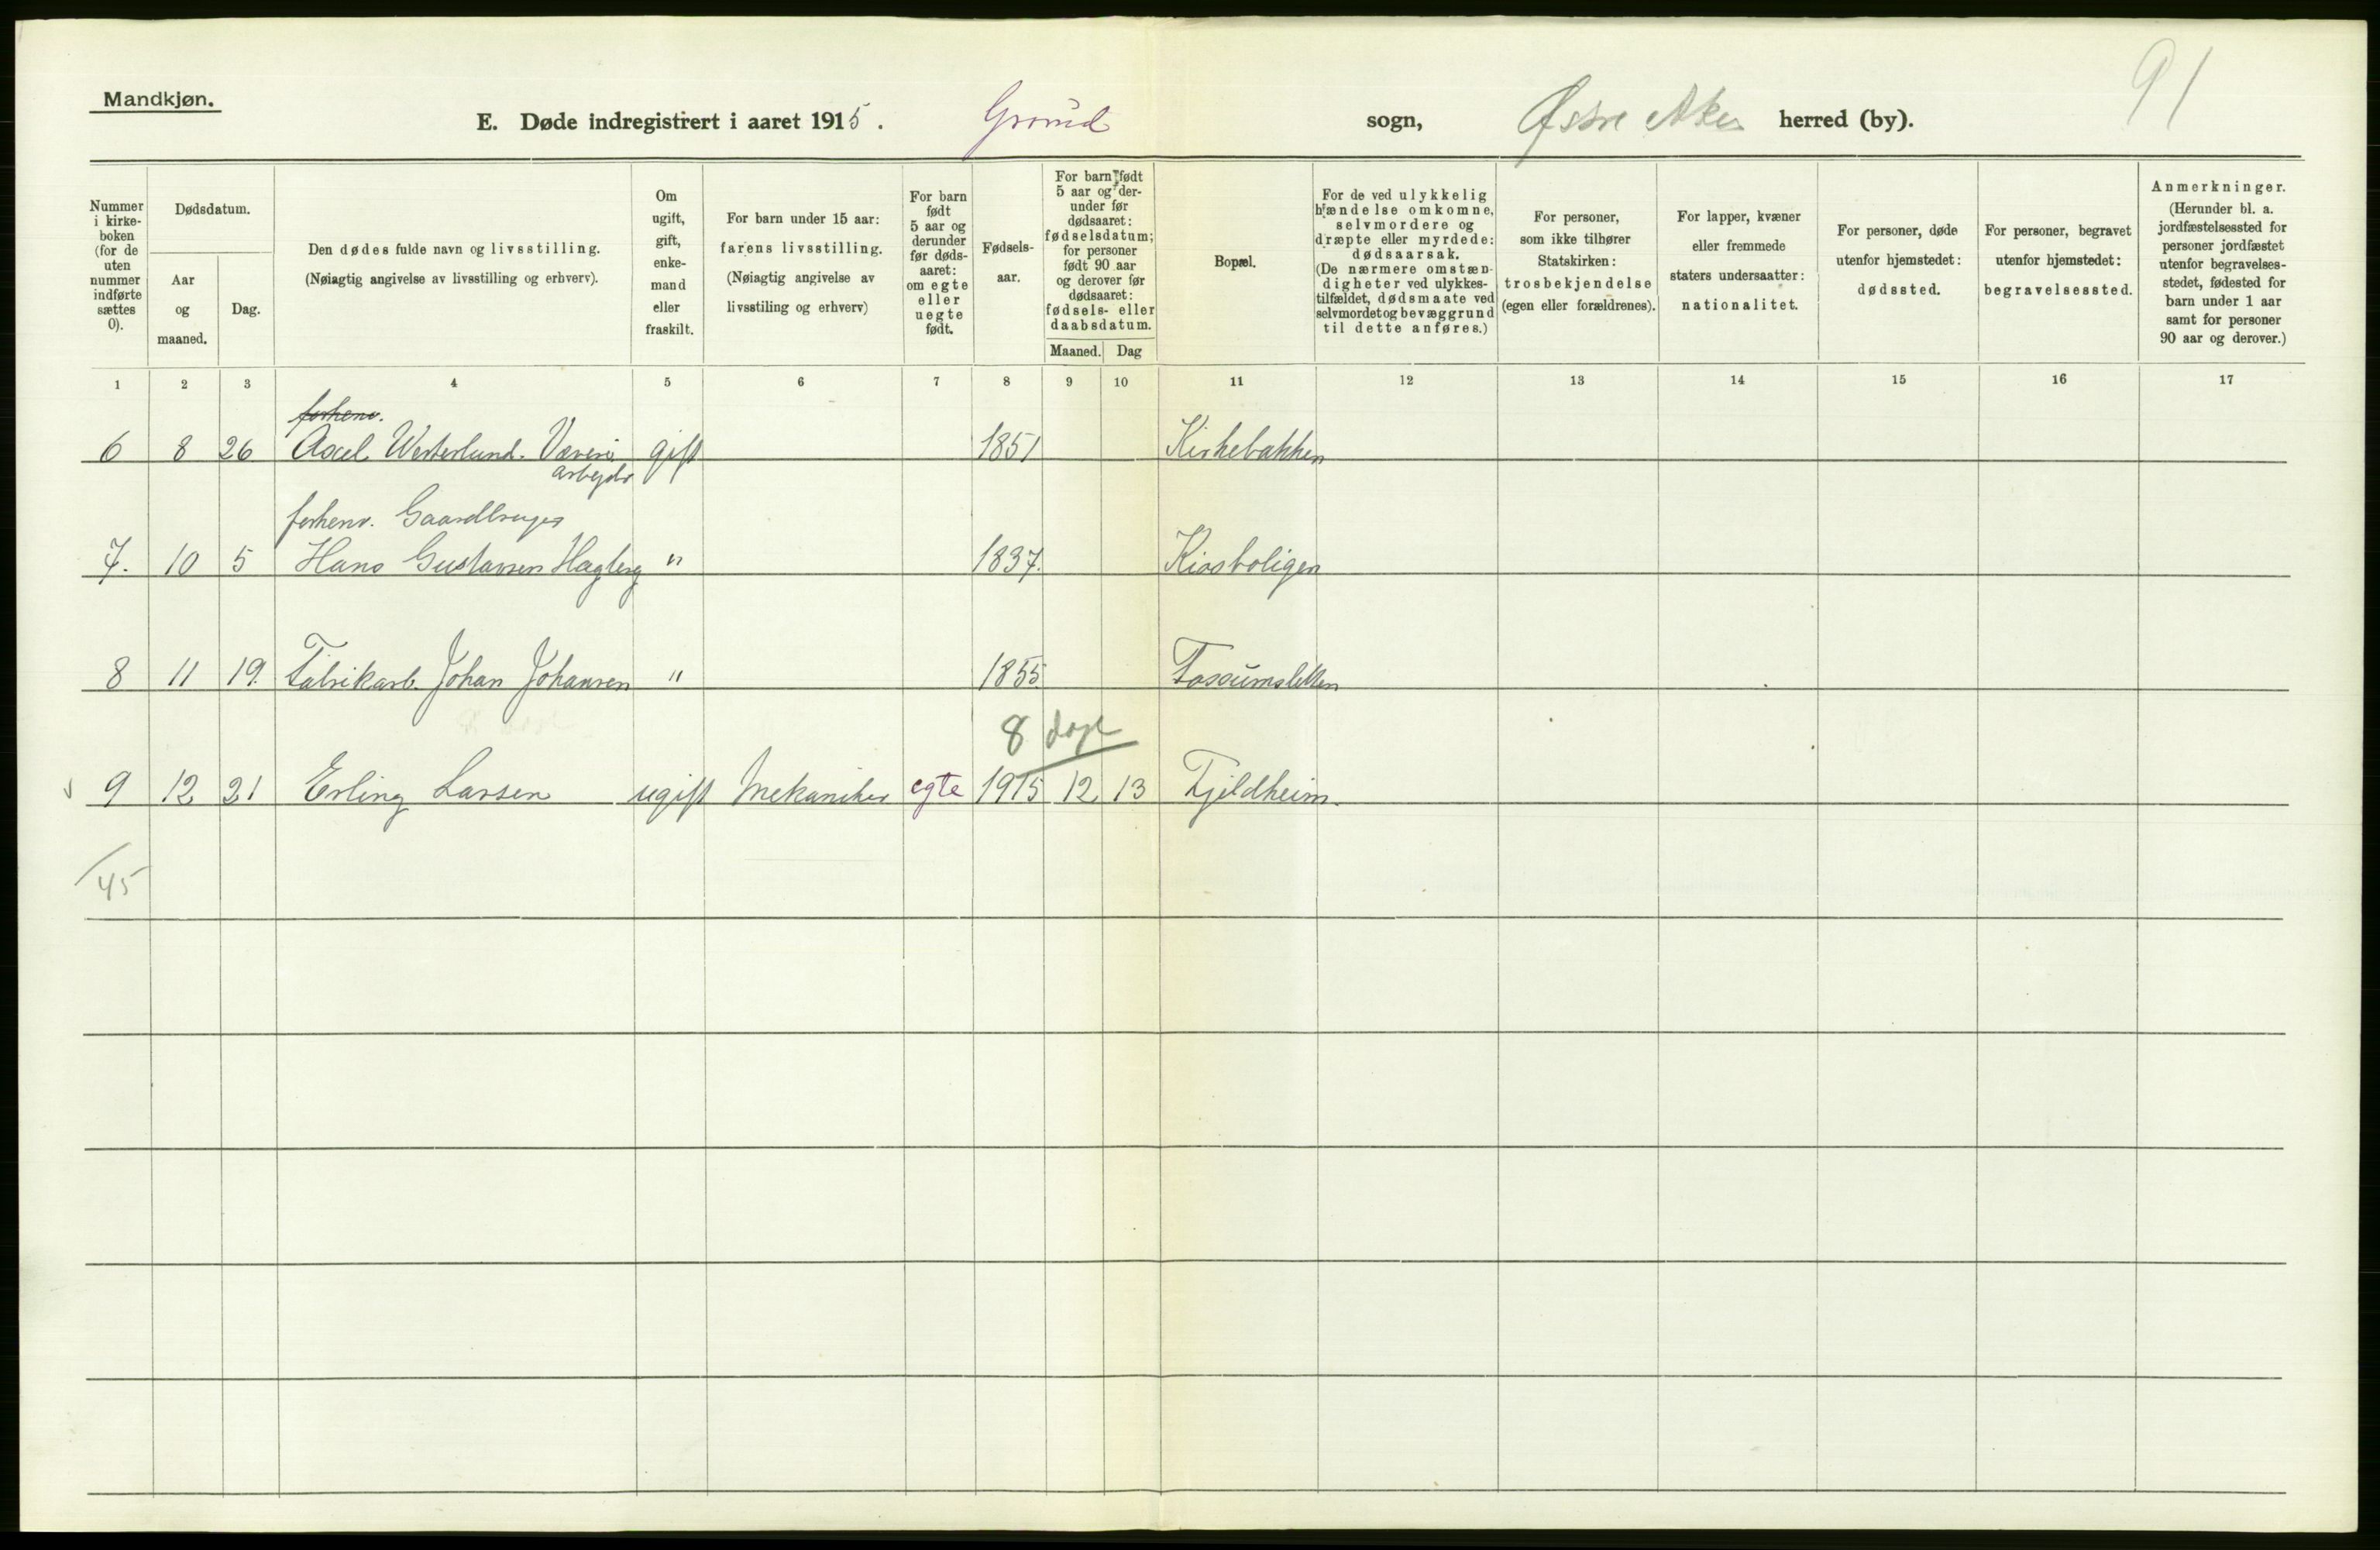 Mandkjøn.
91
E. Døde indregistrert i aaret 1915. Grorud sogn, Østre Aker herred (by).
Nummer i kirke-boken (for de uten nummer indførte sættes 0).
Dødsdatum.
Aar og maaned.
Dag.
Den dødes fulde navn og livsstilling.
(Nøiagtig angivelse av livsstilling og erhverv).
Om ugift, gift, enke-mand eller fraskilt.
For barn under 15 aar:
farens livsstilling.
(Nøiagtig angivelse av
livsstiling og erhverv)
For barn født 5 aar og derunder før døds-aaret: om egte eller uegte født.
Fødsels-aar.
For barn født 5 aar og der-under før dødsaaret: fødselsdatum; for personer født 90 aar og derover før dødsaaret: fødsels- eller daabsdatum.
Maaned. Dag
Bopæl.
For de ved ulykkelig hændelse omkomne, selvmordere og dræpte eller myrdede: dødsaarsak.
(De nærmere omstæn-digheter ved ulykkes-tilfældet, dødsmaate ved selvmordet og bevæggrund til dette anføres.)
For personer, som ikke tilhører Statskirken: trosbekjendelse (egen eller forældrenes).
For lapper, kvæner eller fremmede staters undersaatter: nationalitet.
For personer, døde utenfor hjemstedet: dødssted.
For personer, begravet utenfor hjemstedet: begravelsessted.
Anmerkninger.
(Herunder bl. a. jordfæstelsessted for personer jordfæstet utenfor begravelses-stedet, fødested for barn under 1 aar samt for personer 90 aar og derover.)
1 2 3 4 5 6 7 8 9 10 11 12 13 14 15 16 17
forhenv.
6 8 26 Axel Westerlund. Væveri gift 1851 Kirkebakken
arbeyder
forhenv. Gaardbruger
7. 10 5 Hans Gustavsen Hagberg " 1837. Kiosboligen
8 11 19. Fabrikarb. Johan Johansen " 1855 Fossumsletten
8 dage
9 12 21 Erling Larsen ugift Mekaniker egte 1915 12 13 Fjeldheim.
45